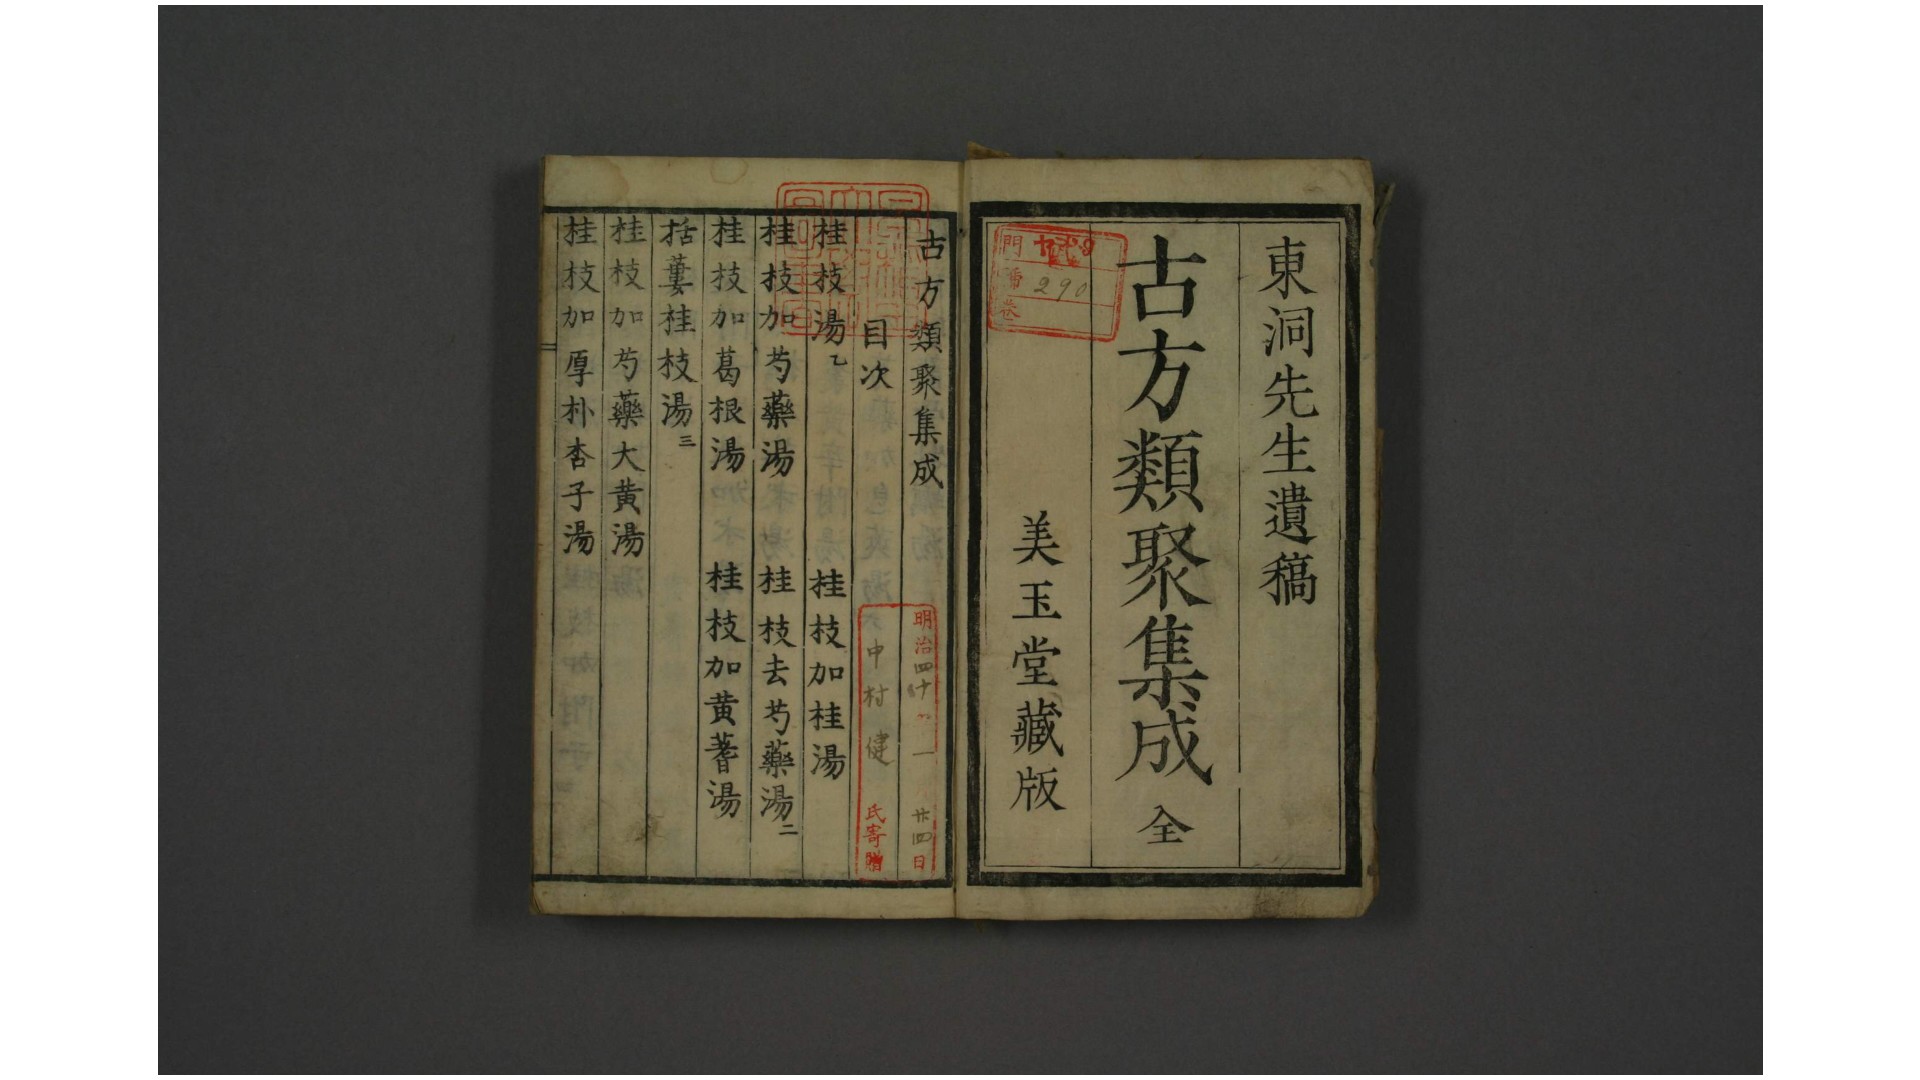 東洞先生遺稿
古方類聚集成 全
美玉堂藏版
門
番
巻
290
古方類聚集成
目次
桂枝湯乙 桂枝加桂湯
桂枝加芍藥湯 桂枝去芍藥湯二
桂枝加葛根湯 桂枝加黄蓍湯
括蔞桂枝湯三
桂枝加芍藥大黄湯
桂枝加厚朴杏子湯
明治四十 一 廿四日
中村健氏寄贈